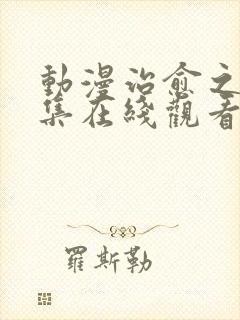 動漫治愈之
集在綫觀看
羅斯勒